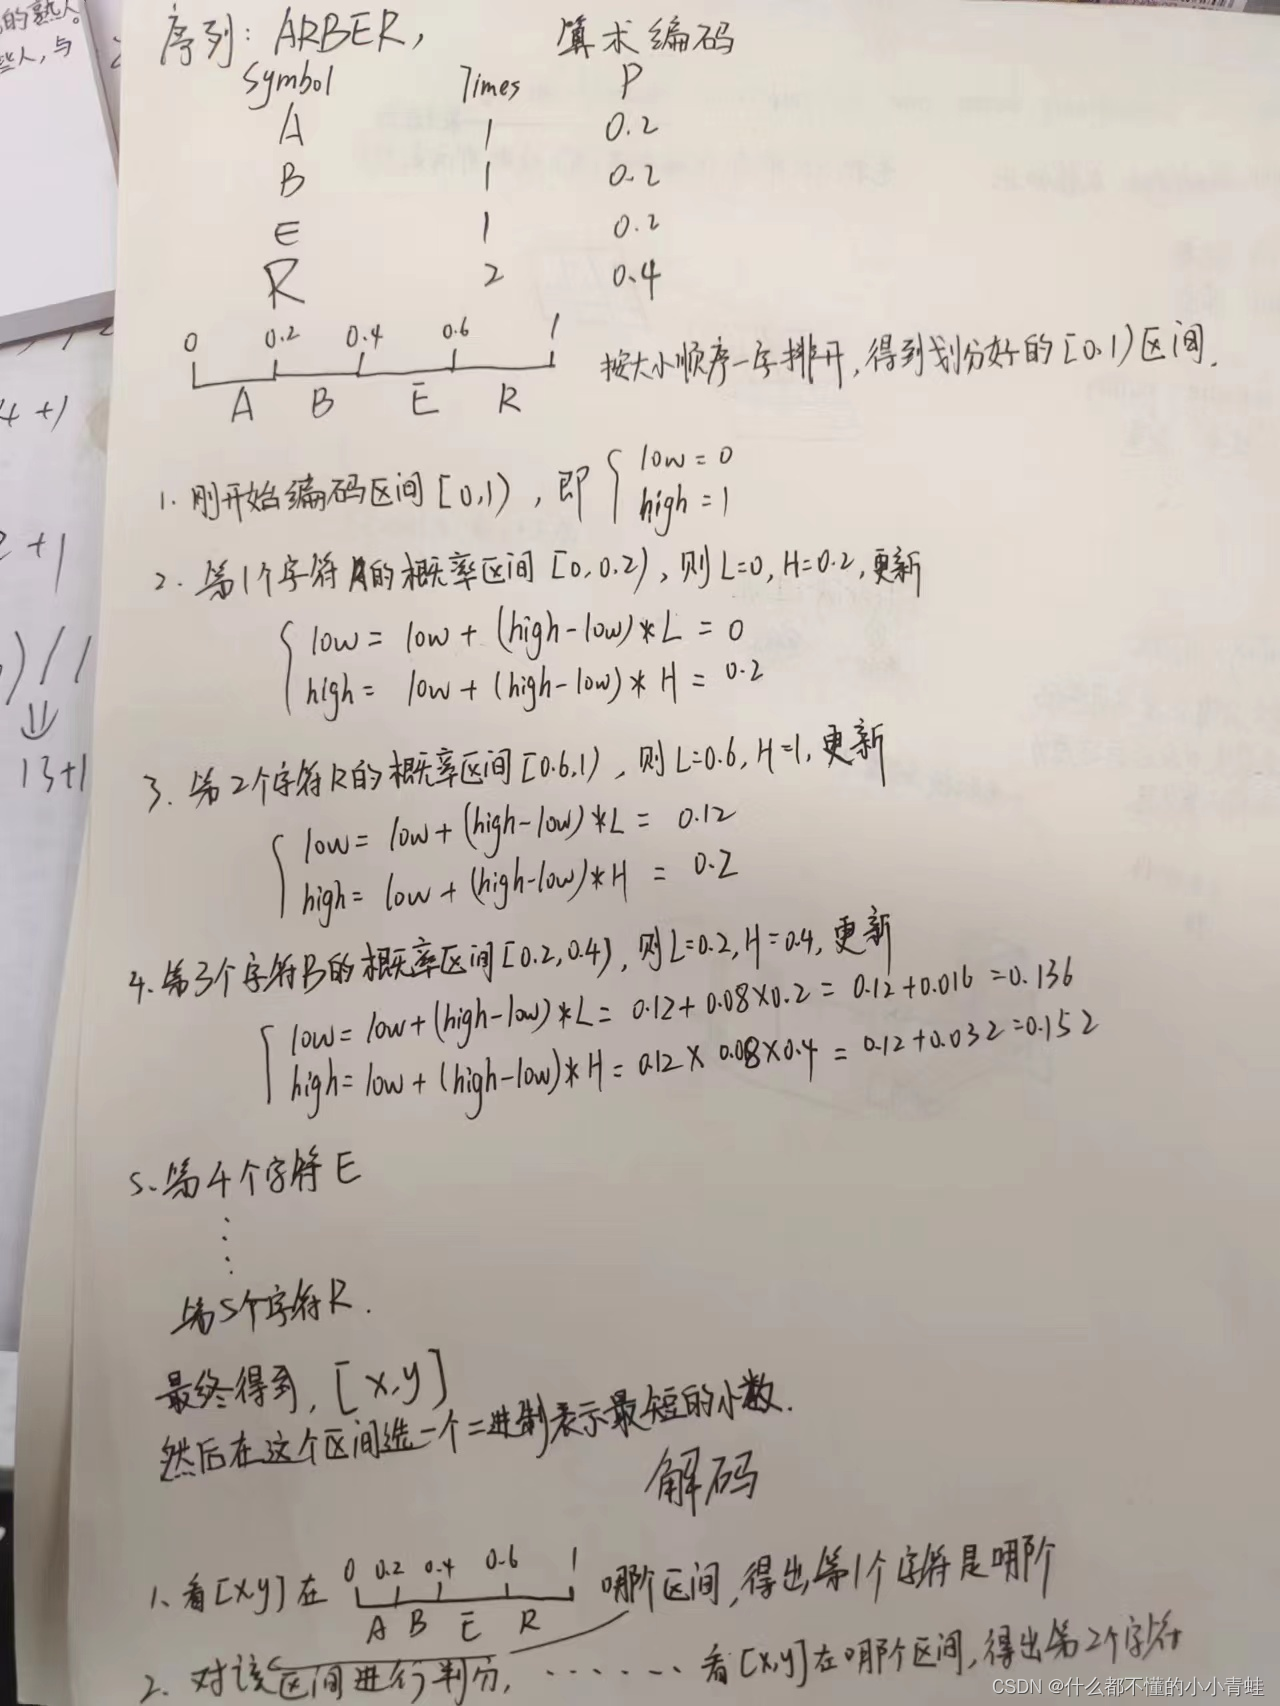 的熟人。
些人,与
序列: ARBER, 算术编码
Symbol Times P
A 1 0.2
B 1 0.2
E 1 0.2
R 2 0.4
0 0.2 0.4 0.6 1
A B E R
按大小顺序一字排开,得到划分好的[0.1)区间.
4+1
2+1
)//
⇓
13+1
1. 刚开始编码区间[0,1),即{low=0
high=1
2. 第1个字符A的概率区间[0,0.2),则L=0,H=0.2,更新
{low= low+(high-low)*L = 0
high= low+(high-low)*H = 0.2
3. 第2个字符R的概率区间[0.6,1),则L=0.6,H=1,更新
{low= low+(high-low)*L= 0.12
high= low+(high-low)*H = 0.2
4. 第3个字符B的概率区间[0.2,0.4),则L=0.2,H=0.4,更新
{low=low+(high-low)*L= 0.12+0.08×0.2= 0.12+0.016=0.136
high=low+(high-low)*H= 0.12×0.08×0.4= 0.12+0.032=0.152
5. 第4个字符E
⋮
第5个字符R.
最终得到,[x,y]
然后在这个区间选一个二进制表示最短的小数.
解码
1. 看[x,y]在 0 0.2 0.4 0.6 1 哪个区间,得出第1个字符是哪个
A B E R
2. 对该区间进行划分,.......看[x,y]在哪个区间,得出第2个字符
CSDN @什么都不懂的小小青蛙